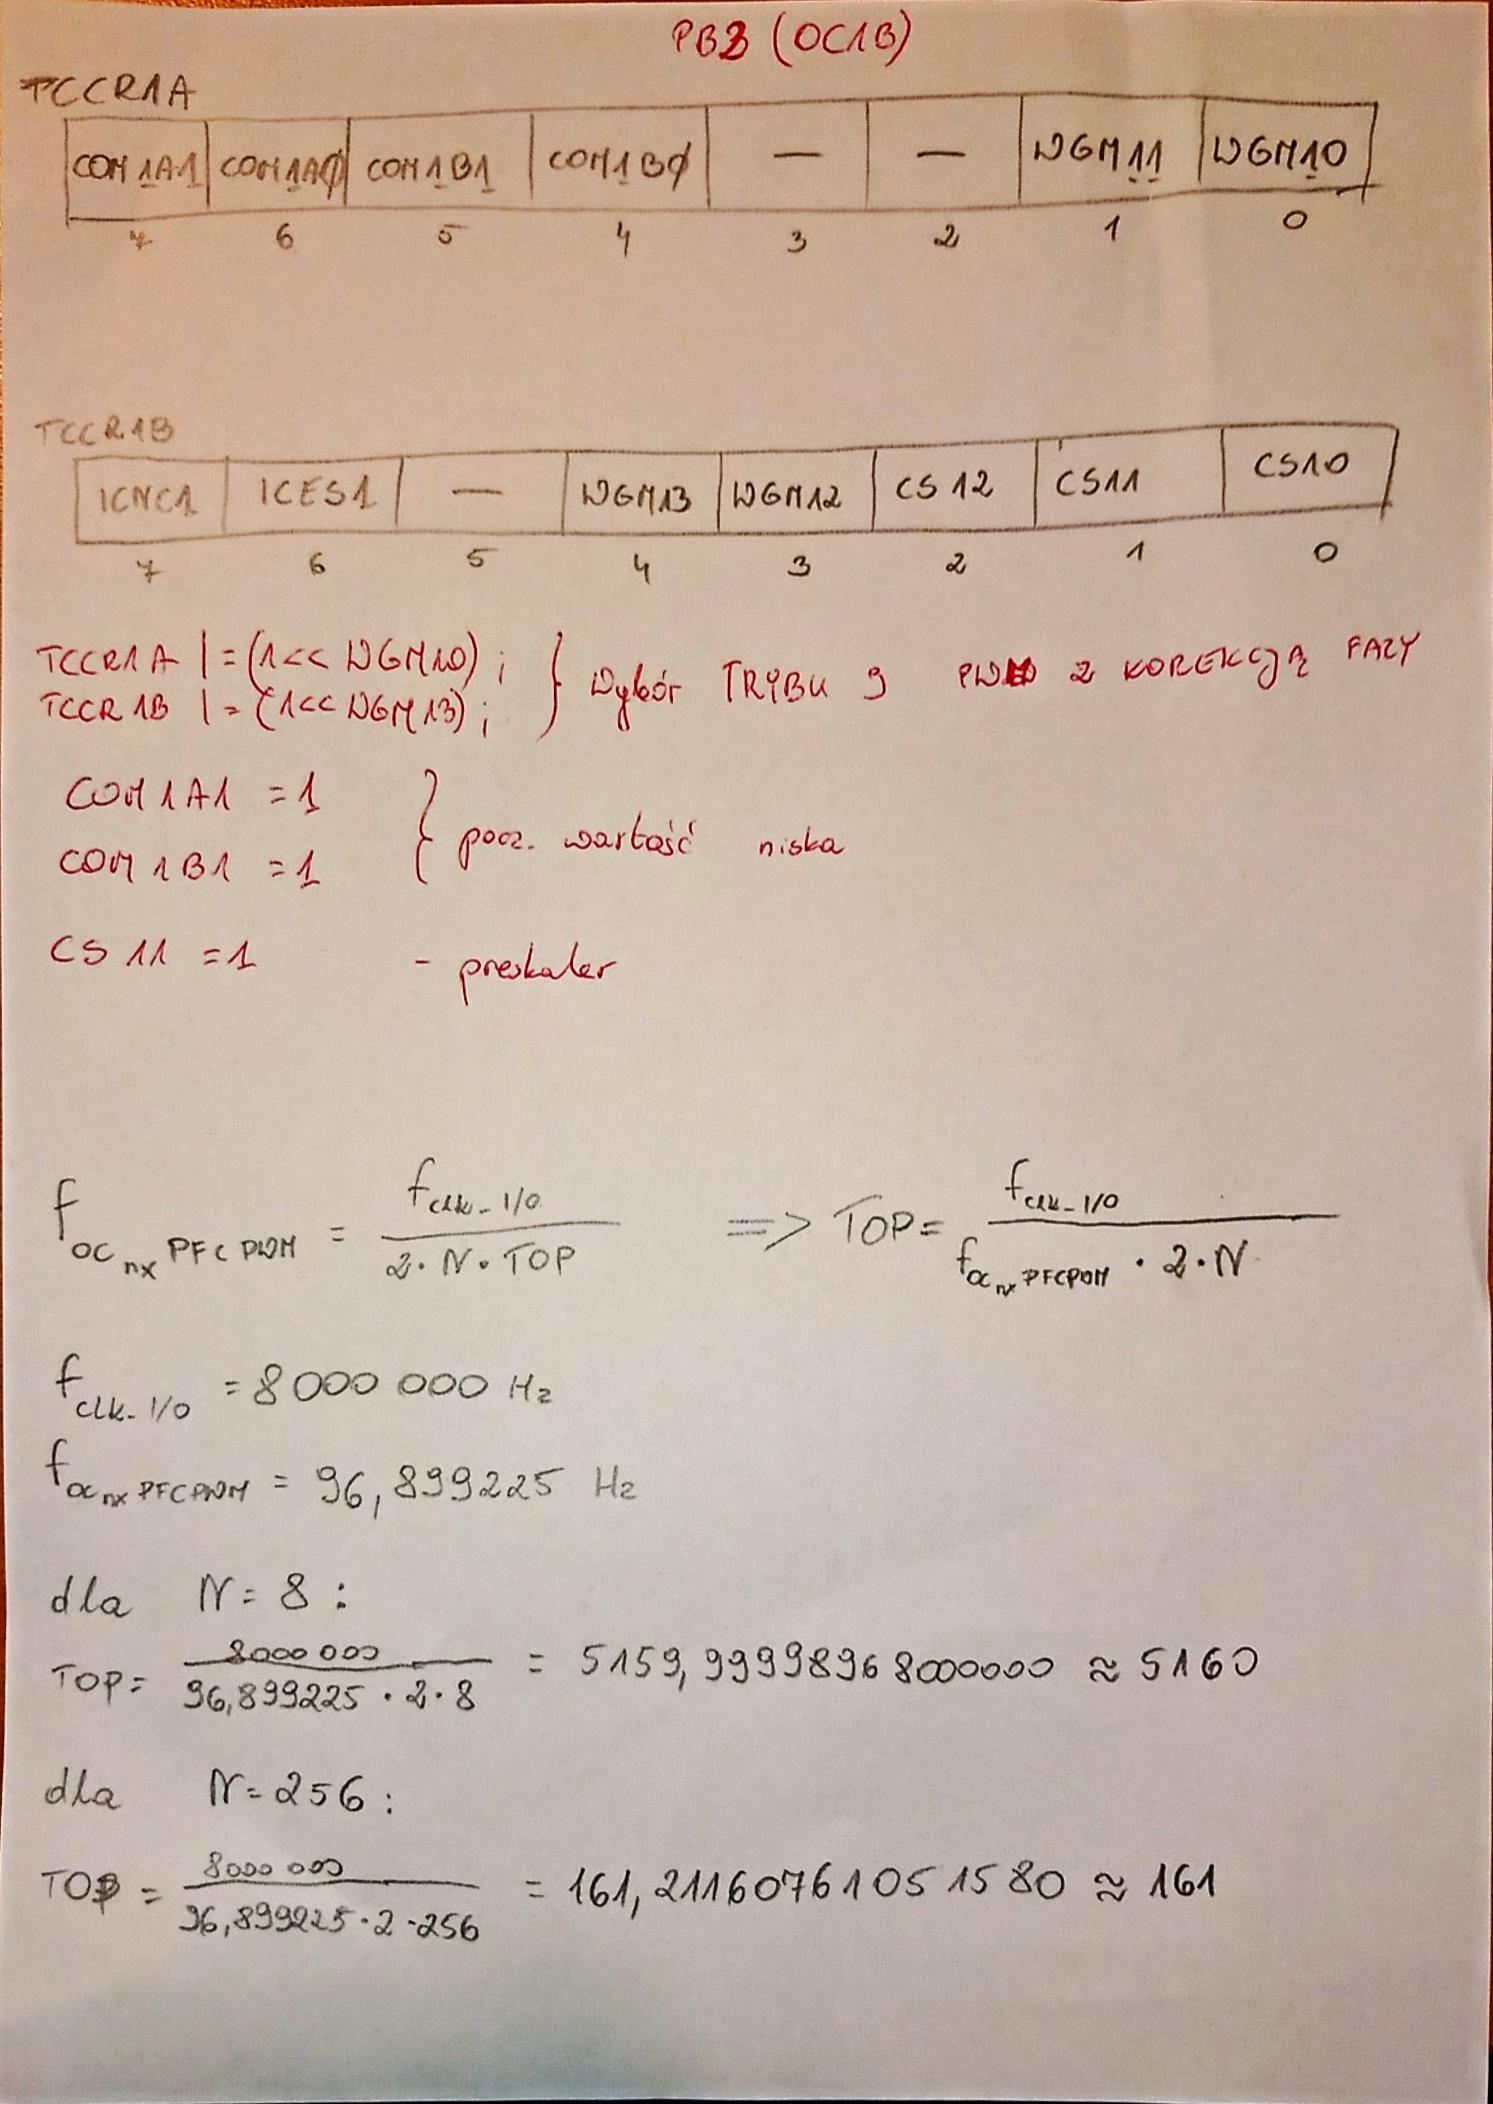 PB2 (OC1B)
TCCR1A
COM1A1 COM1A0 COM1B1 COM1B0 — — WGM11 WGM10
7 6 5 4 3 2 1 0
TCCR1B
ICNC1 ICES1 — WGM13 WGM12 CS12 CS11 CS10
7 6 5 4 3 2 1 0
TCCR1A |= (1<< WGM10) ; } Wybór TRYBU 9 PWM z KOREKCJĄ FAZY
TCCR1B |= (1<< WGM13) ;
COM1A1 = 1 } pocz. wartość niska
COM1B1 = 1
CS11 = 1 - preskaler
f OCnx PFCPWM = f clk_I/O / 2·N·TOP => TOP = f clk_I/O / f OCnx PFCPWM · 2·N
f clk_I/O = 8000 000 Hz
f OCnx PFCPWM = 96,899225 Hz
dla N=8 :
TOP= 8000 000 / 96,899225 · 2·8 = 5159,99998968000000 ≈ 5160
dla N=256 :
TOP = 8000 000 / 96,899225·2·256 = 161,21160761051580 ≈ 161